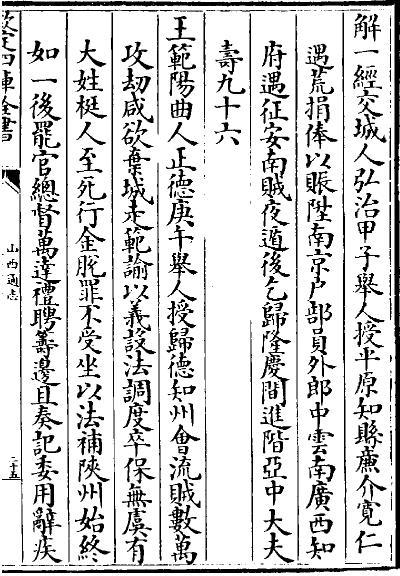 解一經交城人弘治甲子舉人授平原知縣亷介寛仁
遇荒捐俸以賑陞南京户部員外郎中雲南廣西知
府遇征安南賊夜遁後乞歸隆慶間進階亞中大夫
壽九十六
王範陽曲人正德庚午舉人授歸德知州會流賊數萬
攻刼咸欲棄城走範諭以義設法調度卒保無虞有
大姓梃人至死行金脫罪不受坐以法補陝州始終
如一後罷官總督萬達禮聘籌邊且奏記委用辭疾
欽定四庫全書
山西通志
二十五